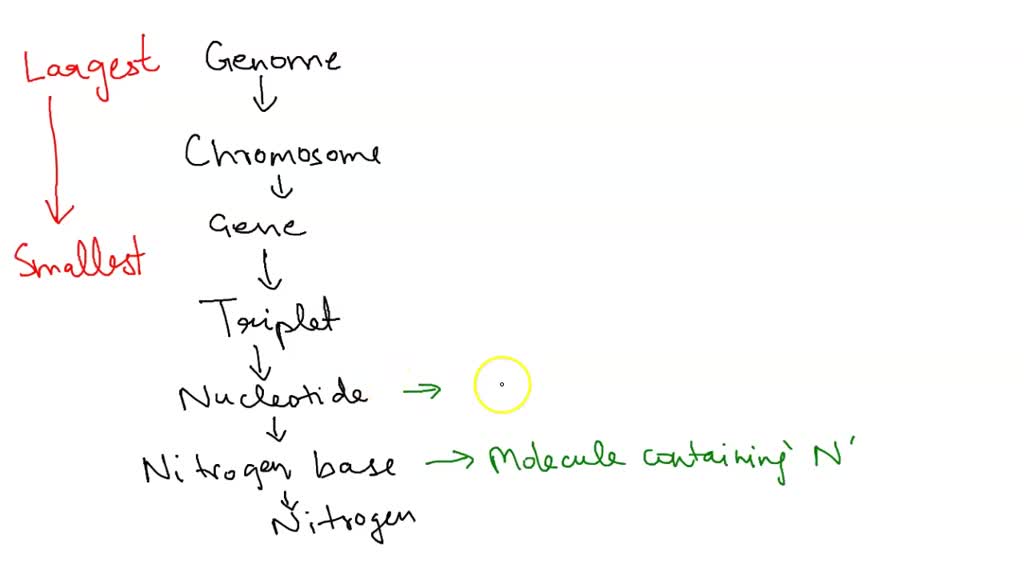 Largest Genome
Chromosome
Gene
Smallest
Triplet
Nucleotide →
Nitrogen base → Molecule containing N'
Nitrogen